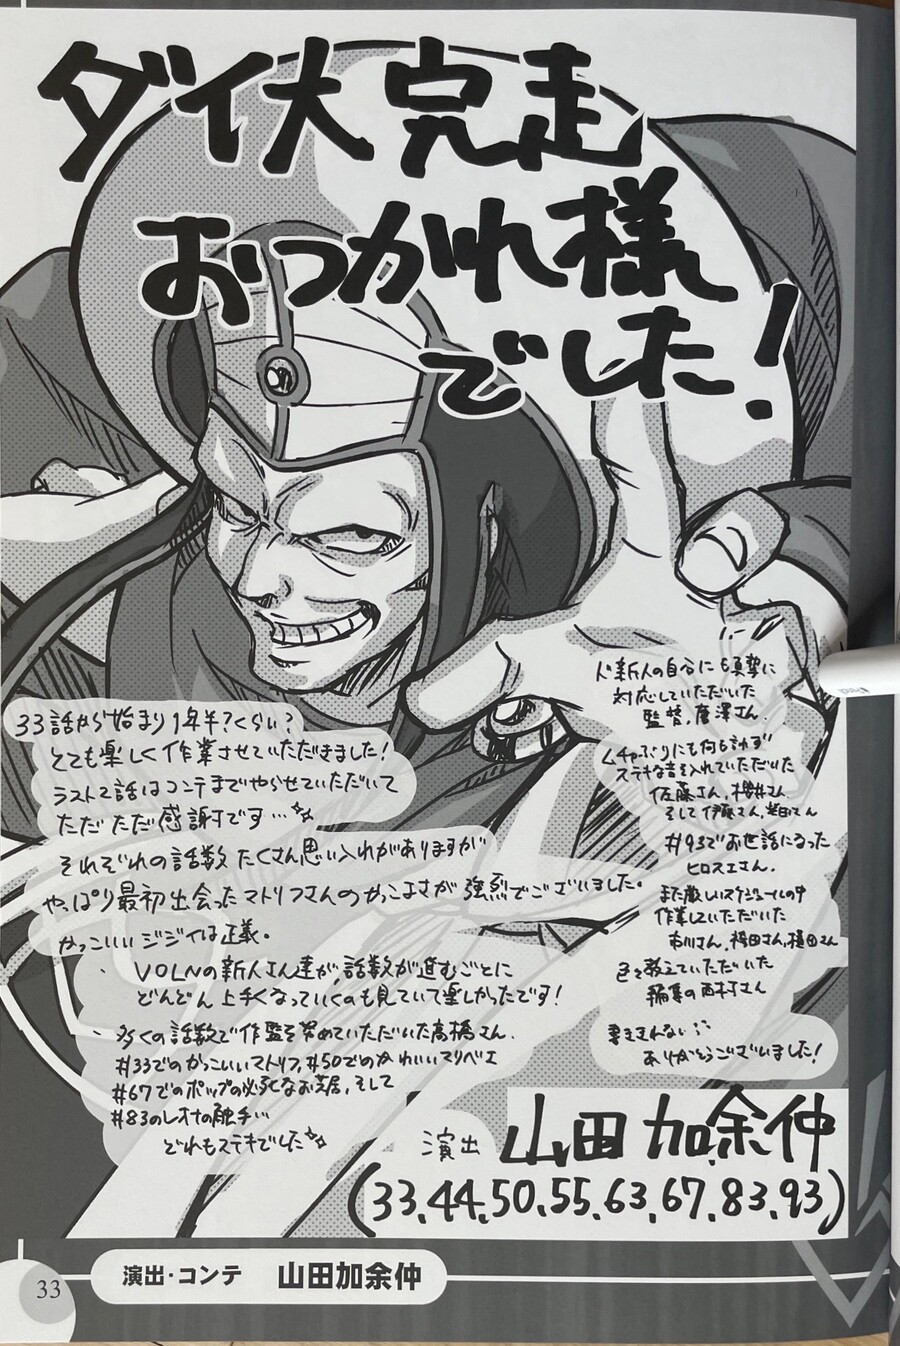 ダイ大完走
おつかれ様
でした!
33話から始まり1年半?くらい?
とても楽しく作業させていただきました!
ラスト2話はコンテまでやらせていただいて
ただただ感謝です…
それぞれの話数たくさん思い入れがありますが
やっぱり最初出会ったマトリフさんのかっこよさが強烈でございました。
かっこいいジジイは正義。
VOLNの新人さん達が、話数が進むごとに
どんどん上手くなっていくのも見ていて楽しかったです!
多くの話数で作監を努めていただいた高橋さん。
#33でのかっこいいマトリフ、#50でのかわいいマリベエ
#67でのポップの必死なお芝居、そして
#83のレオナの触手…
どれもステキでした
ド新人の自分にも真摯に
対応していただいた
監督、唐澤さん。
ムチャぶりにも何も言わず
ステキな音を入れていただいた
佐藤さん、櫻井さん
そして伊藤さん、岩田さん
#93でお世話になった
ヒロスエさん。
また厳しいスケジュールの中
作業していただいた
市川さん、
色々教えていただいた
編集の西村さん
書ききれない…
ありがとうございました!
演出 山田加余仲
(33.44.50.55.63.67.83.93)
33
演出・コンテ 山田加余仲